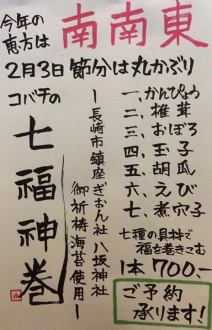 今年の
恵方は
南南東
2月3日 節分は丸かぶり
コバチの
七福神巻
ー長崎市鎮座ぎおん社 八坂神社
御祈祷海苔使用ー
一、かんぴょう
二、椎茸
三、おぼろ
四、玉子
五、胡瓜
六、えび
七、煮穴子
七種の具材で
福を巻きこむ
1本700.-
ご予約
承ります!